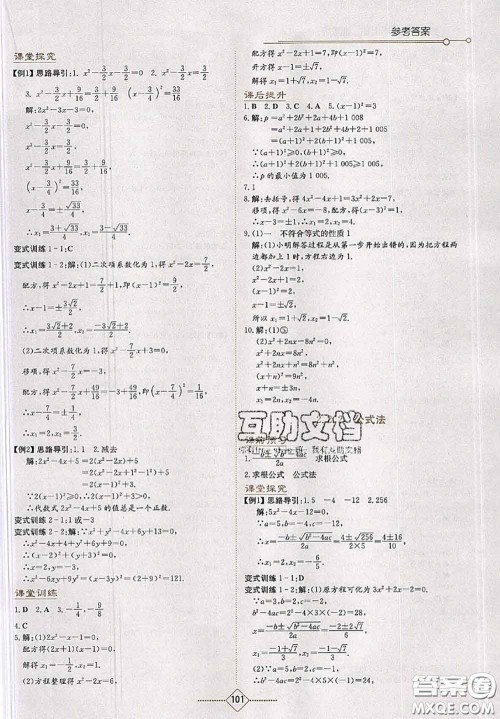 参考答案
课堂探究
【例1】思路导引:1. x²-3/2x-3/2=0 2. x²-3/2x=3/2
3. x²-3/2x+9/16=33/16
解:2x²-3-3x=0,
x²-3/2x-3/2=0,
x²-3/2x=3/2,
x²-3/2x+9/16=3/2+9/16,
(x-3/4)²=33/16,
∴x-3/4=±√33/4,
∴x₁=(3+√33)/4,x₂=(3-√33)/4.
变式训练1-1:C
变式训练1-2:解:(1)二次项系数化为1,得x²-2x=7/2,
配方,得x²-2x+1=7/2+1,即(x-1)²=9/2,
∴x-1=±3√2/2,
∴x₁=(3√2+2)/2,x₂=(-3√2+2)/2.
(2)二次项系数化为1,得x²-7/2x+3=0,
移项,得x²-7/2x=-3,
配方,得x²-7/2x+49/16=-3+49/16,即(x-7/4)²=1/16,
∴x-7/4=±1/4,
∴x₁=2,x₂=3/2.
【例2】思路导引:1. 1 2. 减去
解:2x²-4x+5=2(x²-2x)+5
=2(x²-2x+1)+5-2
=2(x-1)²+3.
∵(x-1)²≥0,
∴2(x-1)²+3>0,
∴代数式2x²-4x+5的值总是一个正数.
变式训练2-1:1或-3
变式训练2-2:解:∵x²+y²-4x+6y+13=0,
∴x²-4x+4+y²+6y+9=0,
∴(x-2)²+(y+3)²=0,
∴x-2=0,y+3=0,
解得x=2,y=-3,
∴(2x-6y)²=(2×2+6×3)²=121.
课堂训练
1. D 2. A 3. -1/4 -9/8
4. C
5. 解:(1)2x²-x-6=0,
解得x₁=-3/2,x₂=2.
(2)方程整理得x²-2x=6,
配方得x²-2x+1=7,即(x-1)²=7,
开方得x-1=±√7,
解得x₁=1+√7,x₂=1-√7.
课后提升
1. B 2. D 3. C 4. A 5. (x-1)²=3
6. 解:p=a²+2b²+2a+4b+1 008
=a²+2a+1+2(b²+2b+1)+1 005
=(a+1)²+2(b+1)²+1 005.
∵(a+1)²≥0,(b+1)²≥0,
∴p的最小值为1 005.
7. 1
8. 解:去括号,得4x²-4x+1=3x²+2x-7,
移项,得x²-6x=-8,
配方,得(x-3)²=1,
∴x-3=±1,
∴x₁=2,x₂=4.
9. (1)一 不符合等式的性质1
解:(1)小明解答过程是从第一步开始出错的,因为把方程两
边都加上1时,方程右边为1.
(2)x²-2x=0,
x²-2x+1=1,
(x-1)²=1,
x-1=±1,
所以x₁=2,x₂=0.
10. 解:(1)⑤
(2)x²+2nx-8n²=0,
x²+2nx=8n²,
x²+2nx+n²=8n²+n²,
(x+n)²=9n²,
x+n=±3n,
∴x₁=2n,x₂=-4n.
公式法
课前预习
1. (-b±√(b²-4ac))/2a 求根公式
2. 求根公式 公式法
课堂探究
【例1】思路导引:1. 5 -4 -12 2. 256
解:5x²-4x-12=0,
∴x=(-b±√(b²-4ac))/2a=(4±√256)/(2×5)=(4±16)/10,
∴x₁=2,x₂=-6/5.
变式训练1-1:D
变式训练1-2:解:(1)原方程可化为3x²+2x-2=0.
∵a=3,b=2,c=-2,
b²-4ac=2²-4×3×(-2)=28>0,
x₁=(-1+√7)/3,x₂=(-1-√7)/3.
(2)∵a=1,b=-2√3,c=2,
b²-4ac=(-2√3)²-4×1×2=4>0,
互助文档
答案圈
MXQE.COM
101